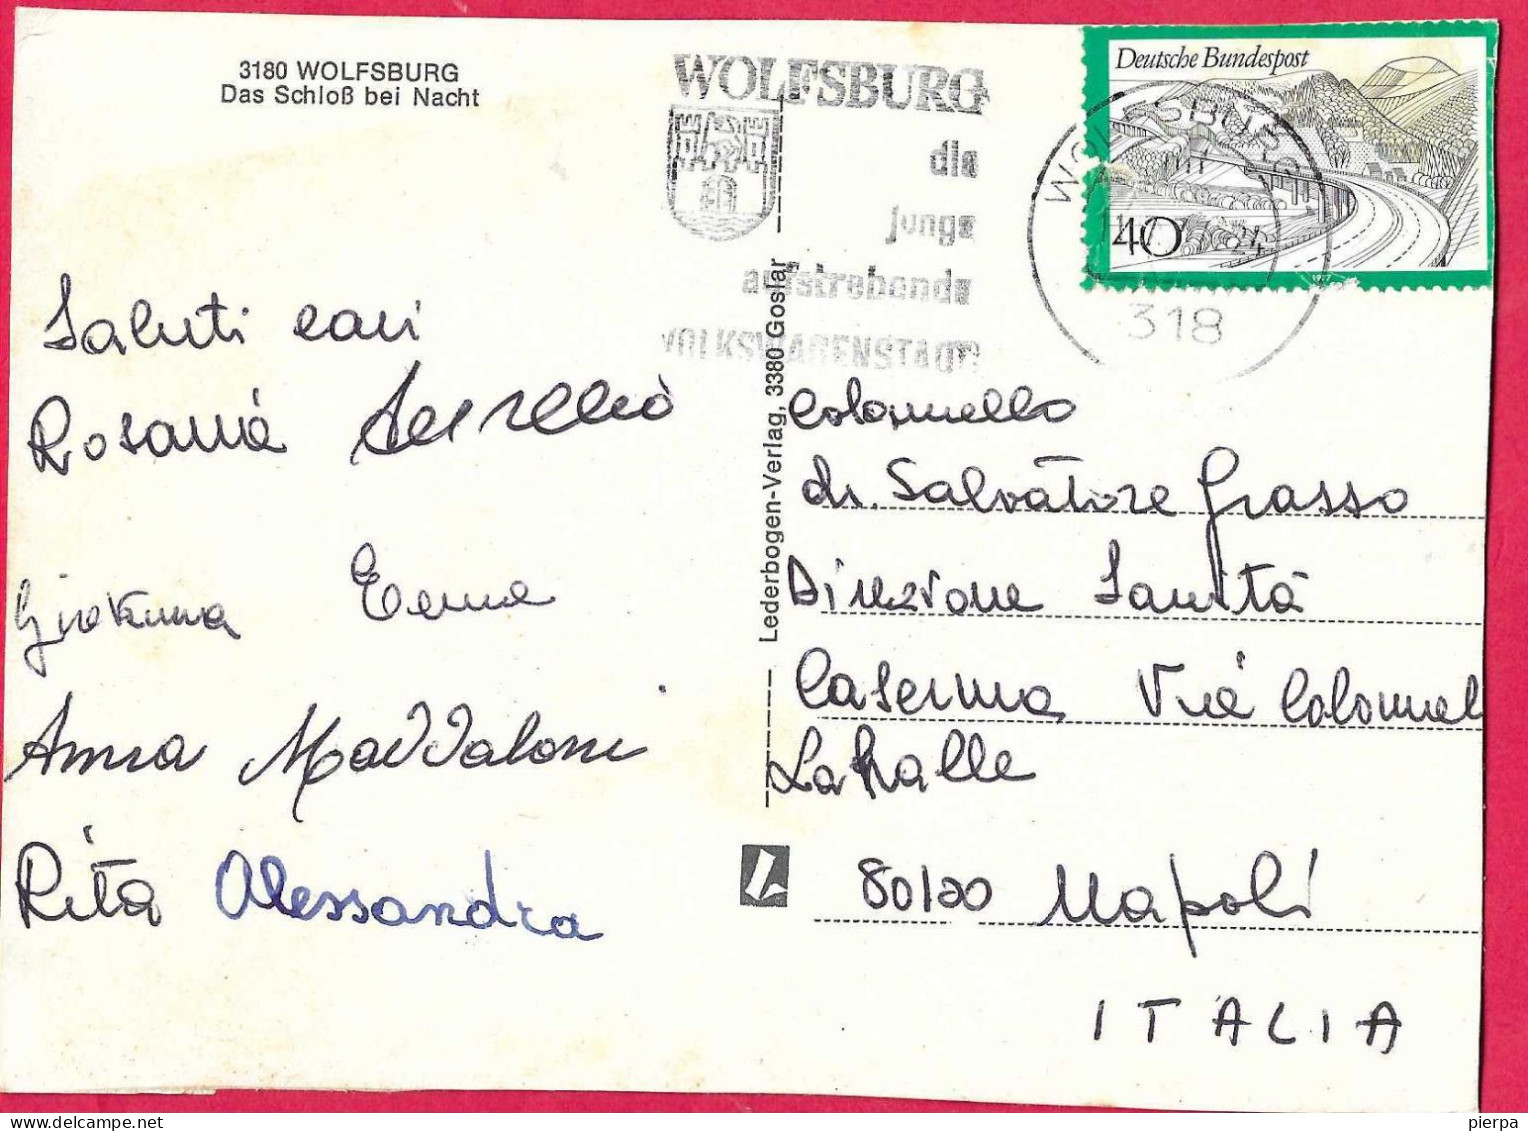 3180 WOLFSBURG
Das Schloß bei Nacht
WOLFSBURG
die
junge
aufstrebende
VOLKSWAGENSTADT
Deutsche Bundespost
40
WOLFSBURG
318
Saluti cari
Rosaria Aurelio
Giovanna
Anna Maddaloni
Rita Alessandra
Lederbogen-Verlag, 3380 Goslar
Colonnello
dr. Salvatore Grasso
Direzione Sanità
Caserma Via Colonnel
Lahalle
80120 Napoli
ITALIA
pierpa